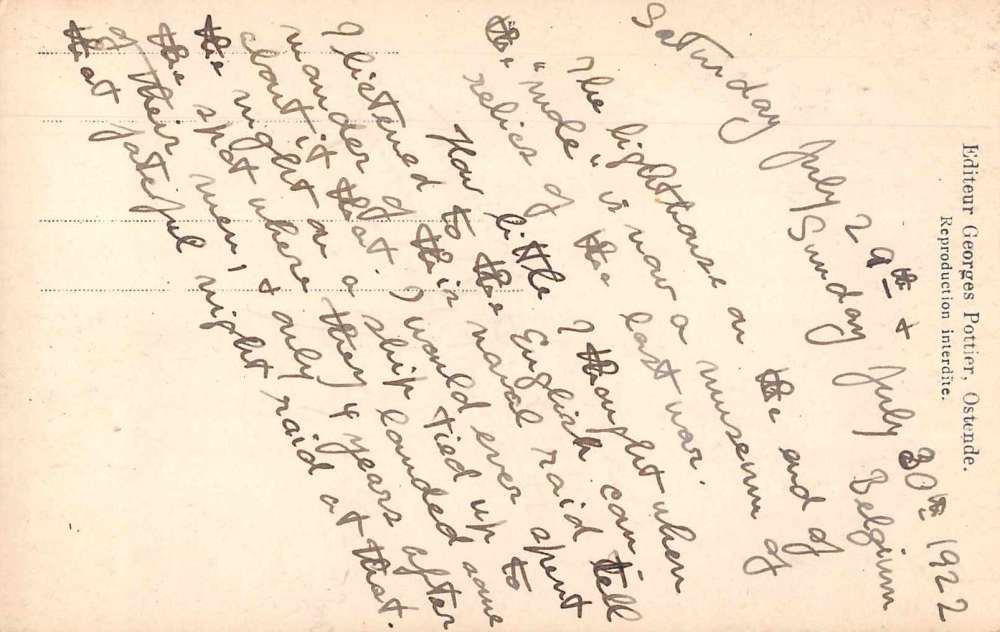 Editeur Georges Pottier, Ostende.
Reproduction interdite.
Saturday July 29th +
Sunday July 30th 1922
Belgium
The lighthouse on the end of
the "mole" is now a museum of
relics of the last war.
How little I thought when
I listened to the English com
mander of their naval raid tell
about it that. I would ever spent
the night on a ship tied up to
the spot where they landed some
of their men, + only 4 years after
that fateful night raid at that.